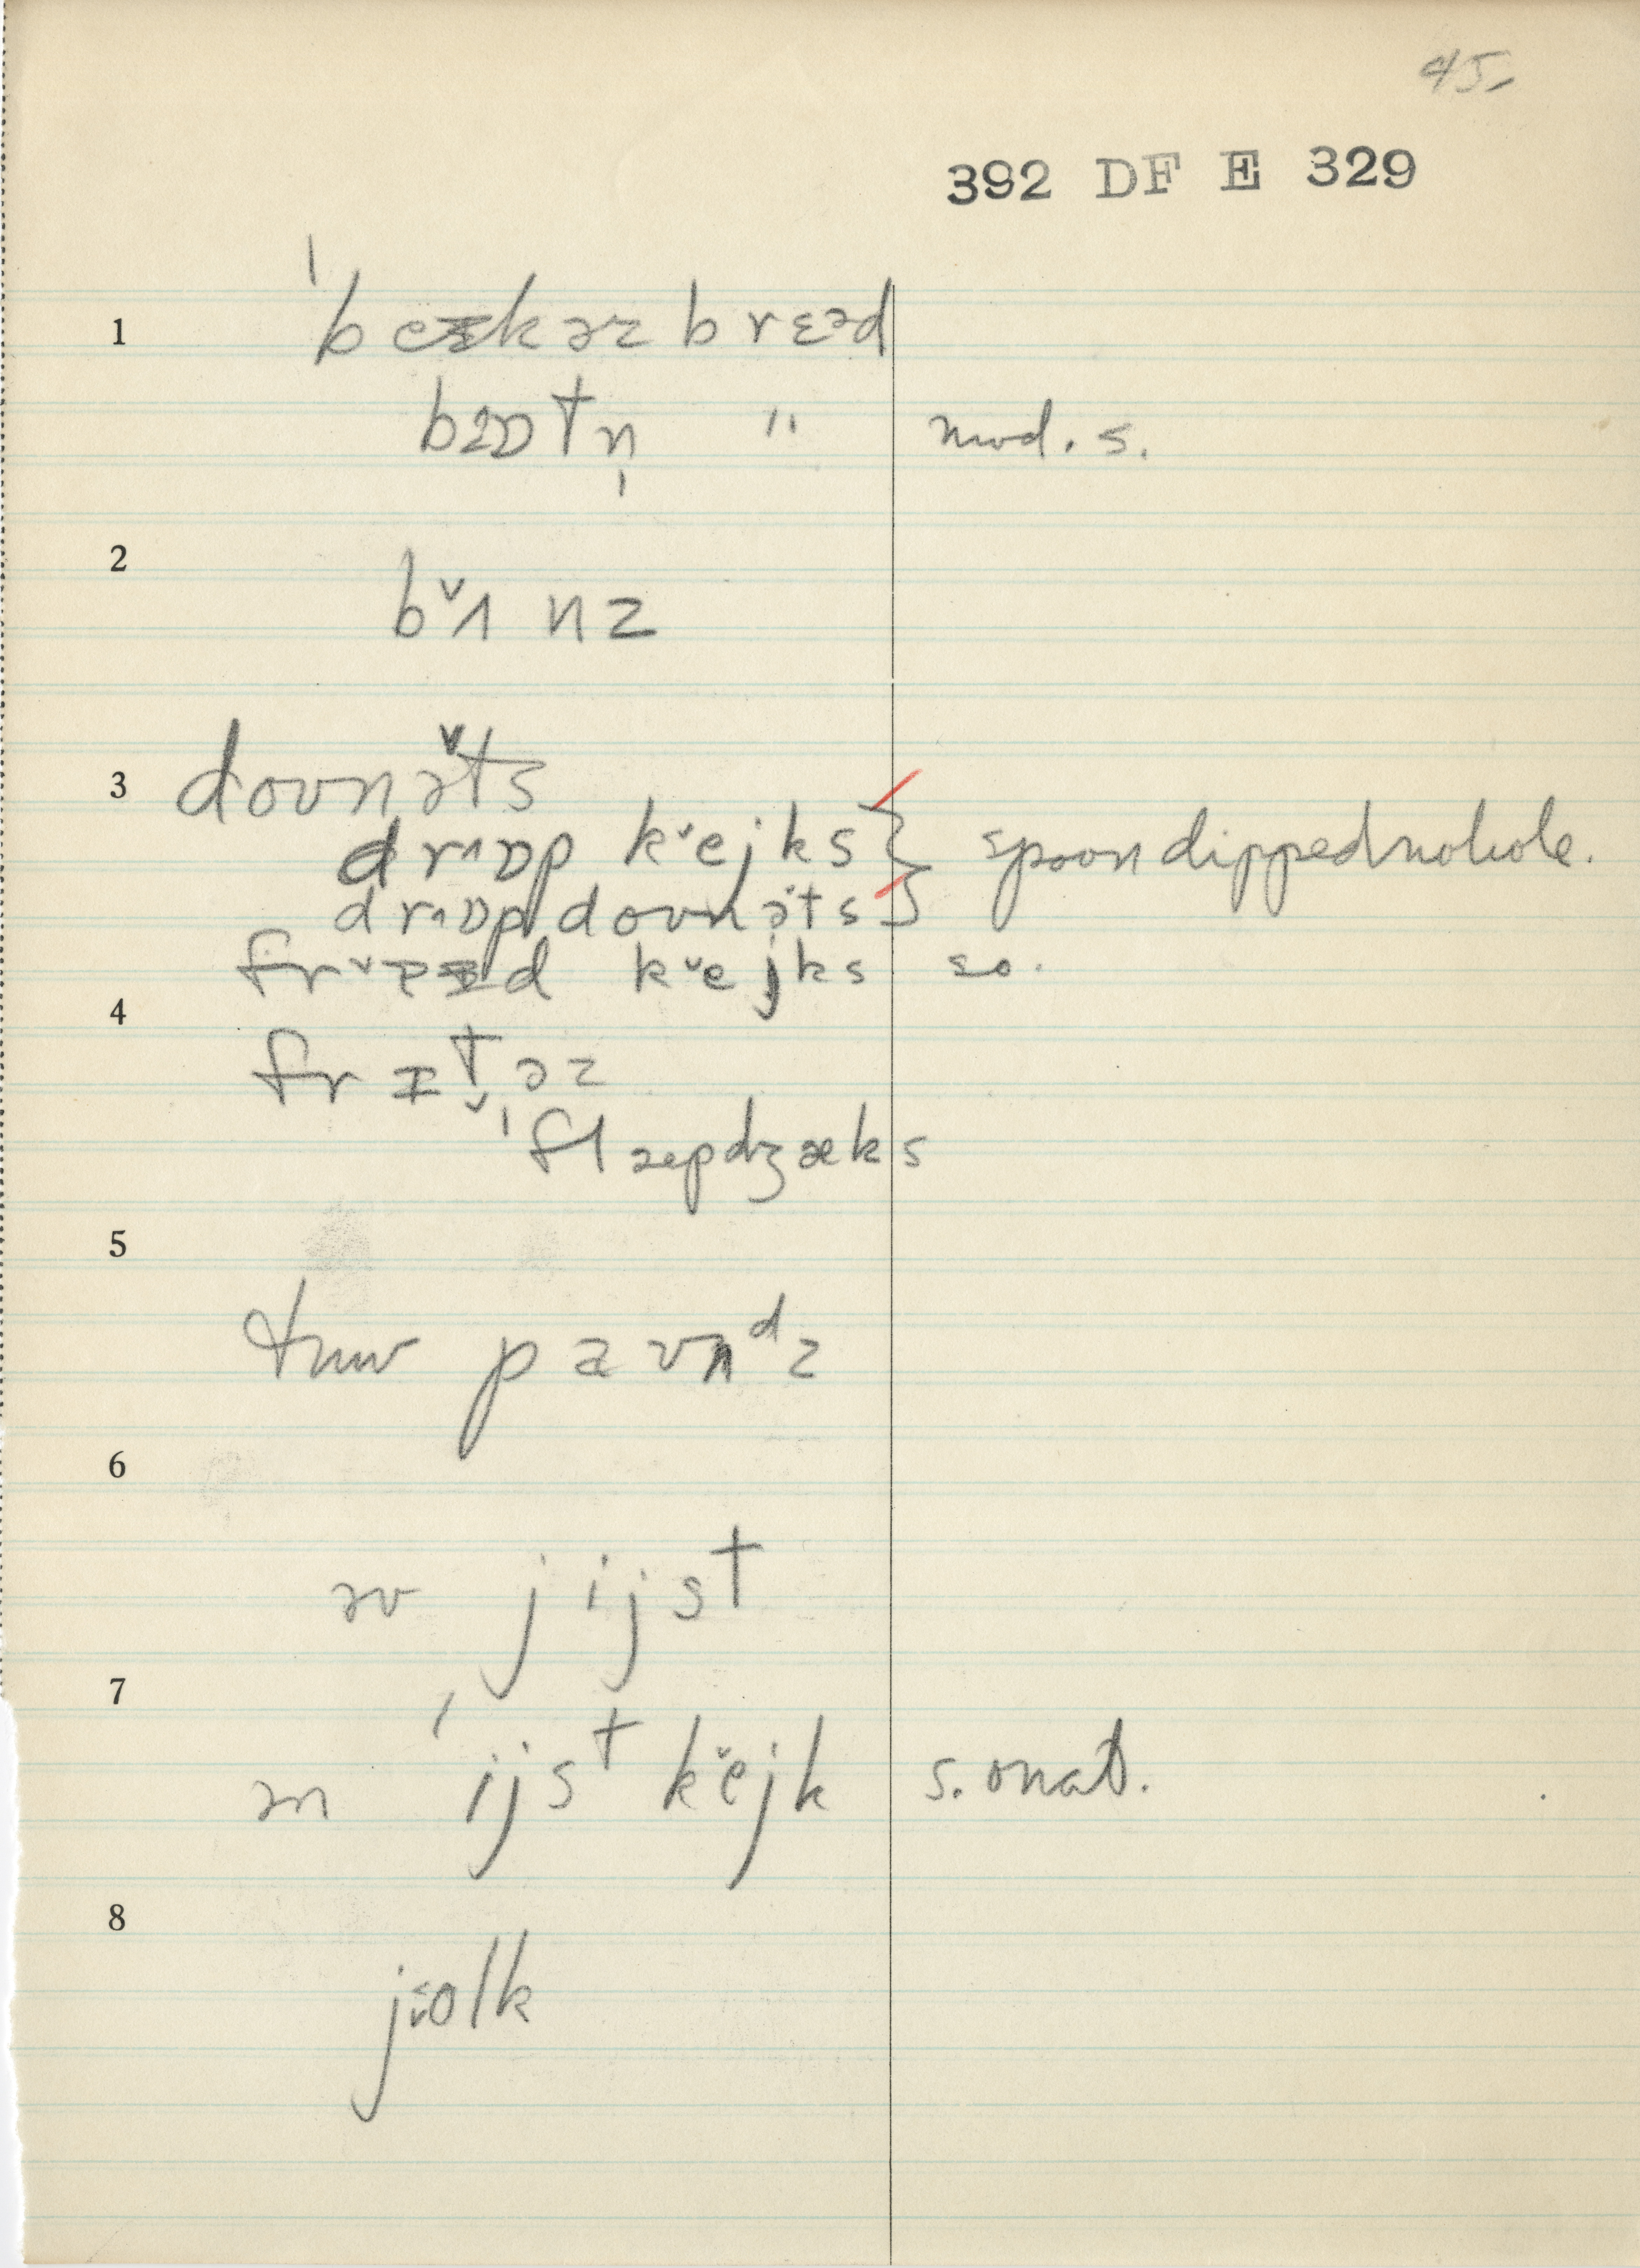 45.
392 DF E 329
1 ˈbeɪkəz brɛəd
bɒɒtn̩ " mod. s.
2 bˇʌnz
3 doʊnə̌ts
drˆɒp kˇejks } spoon dipped no hole.
drˆɒp doʊnəts
frˇaɪd kˇejks so.
4 frɪt̬əz
ˈflæpdʒæks
5
tuw paʊnᵈz
6
əv jijst
7
ən ˈijst kějk s. o nat.
8
jolk